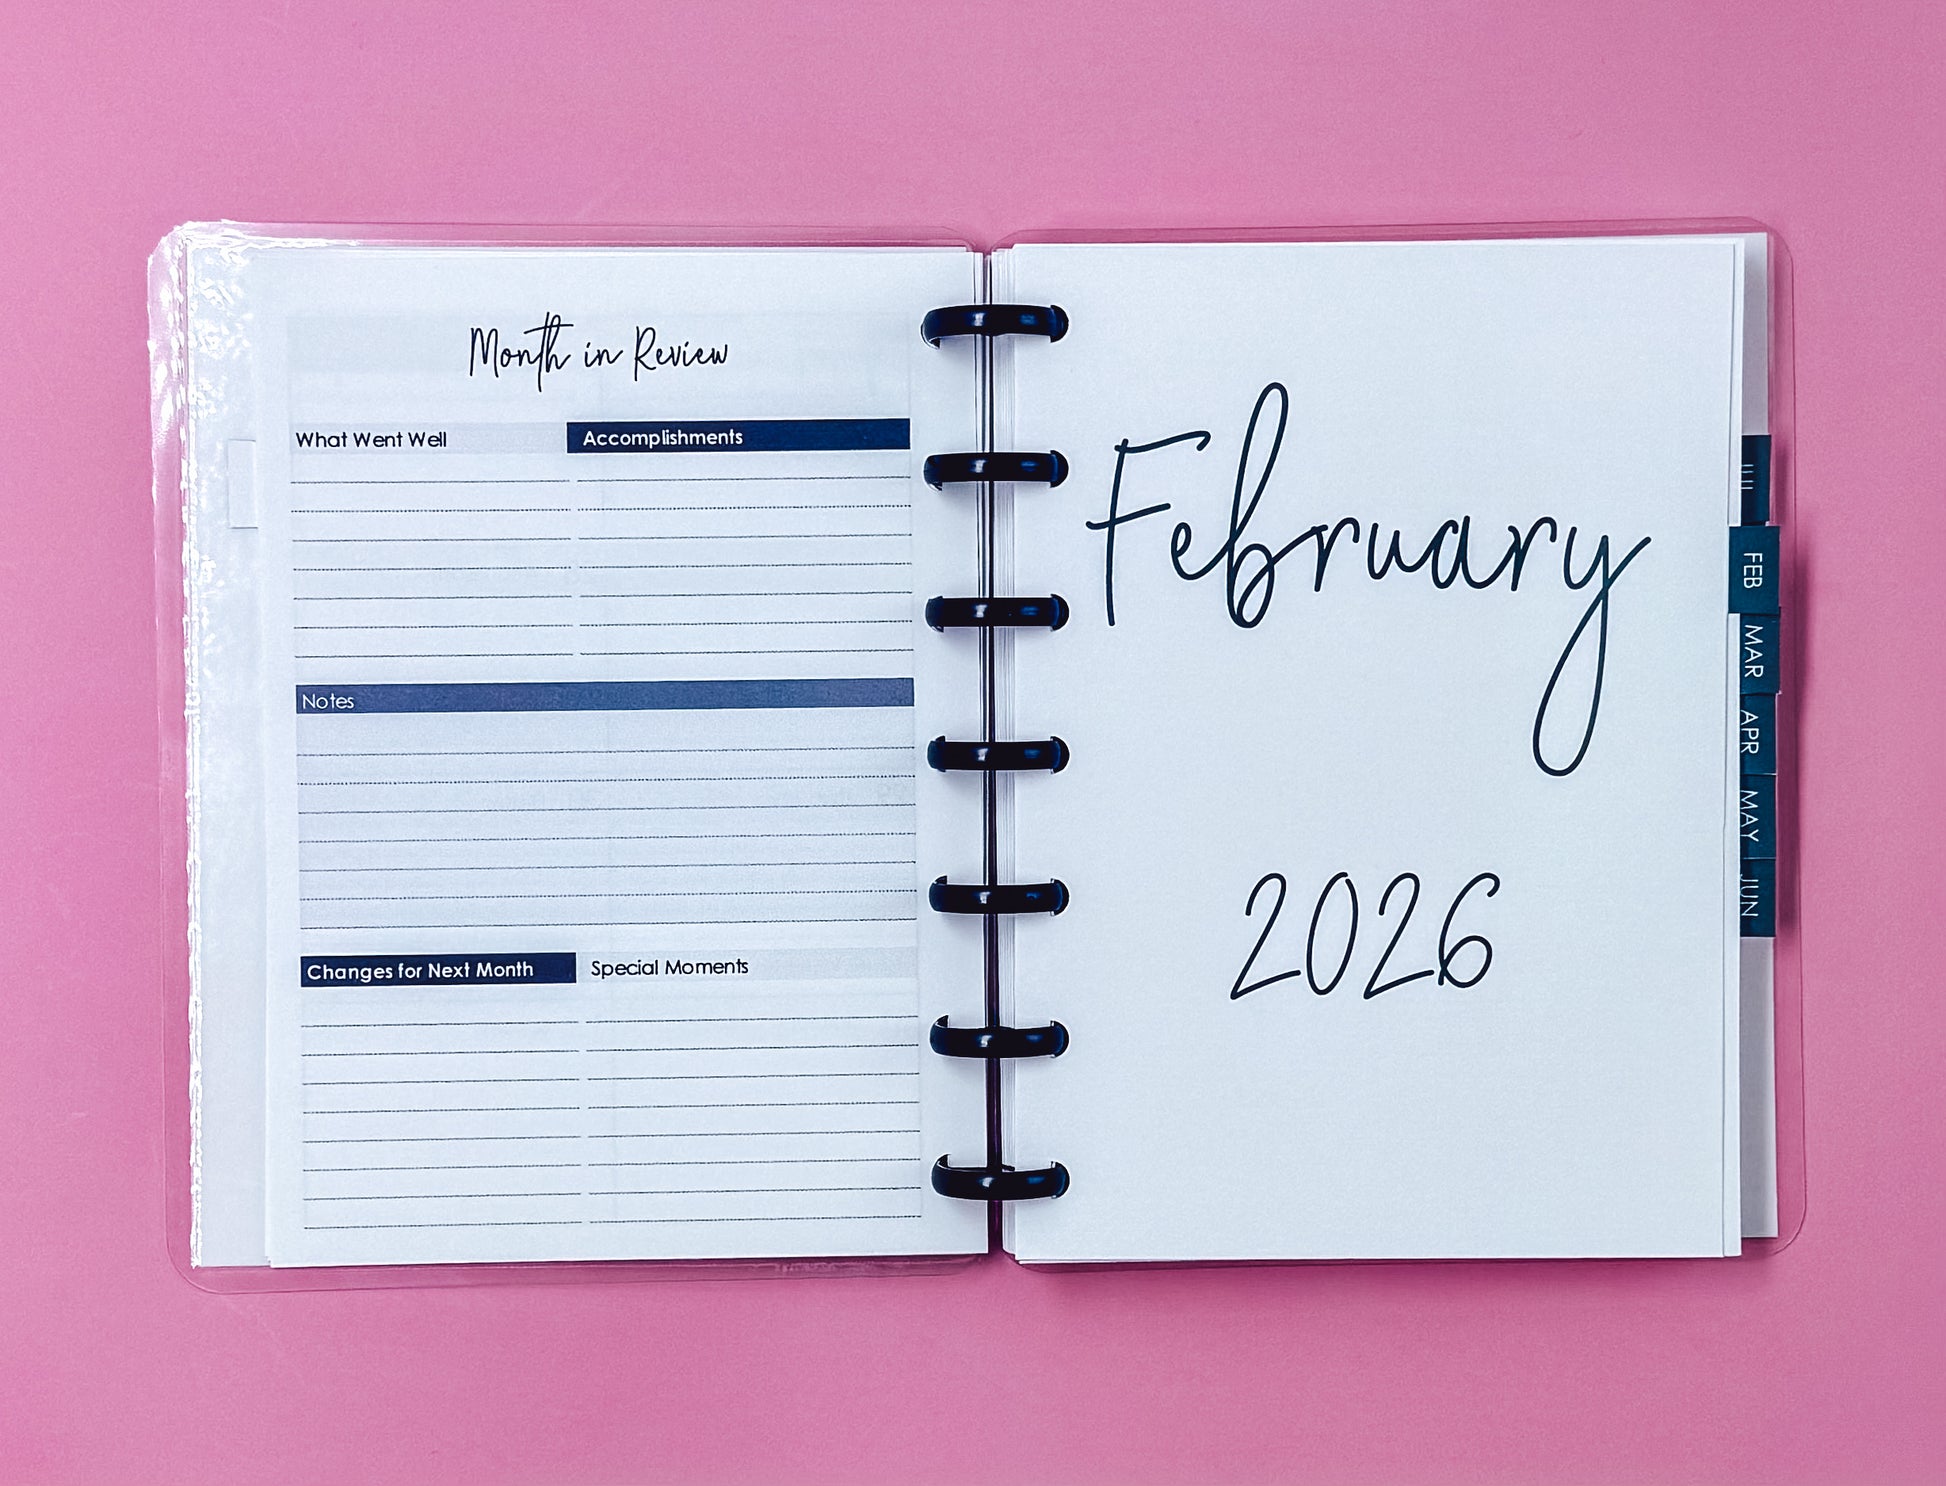 Month in Review
What Went Well
Accomplishments
Notes
Changes for Next Month
Special Moments
February
2026
FEB
MAR
APR
MAY
JUN